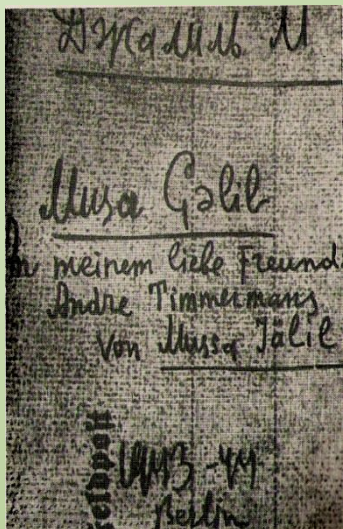 Джалиль М
Musa Gəlil
meinem liebe Freund
Andre Timmermans
von Mussa Jälil
1943-44
Berlin
Feldpost